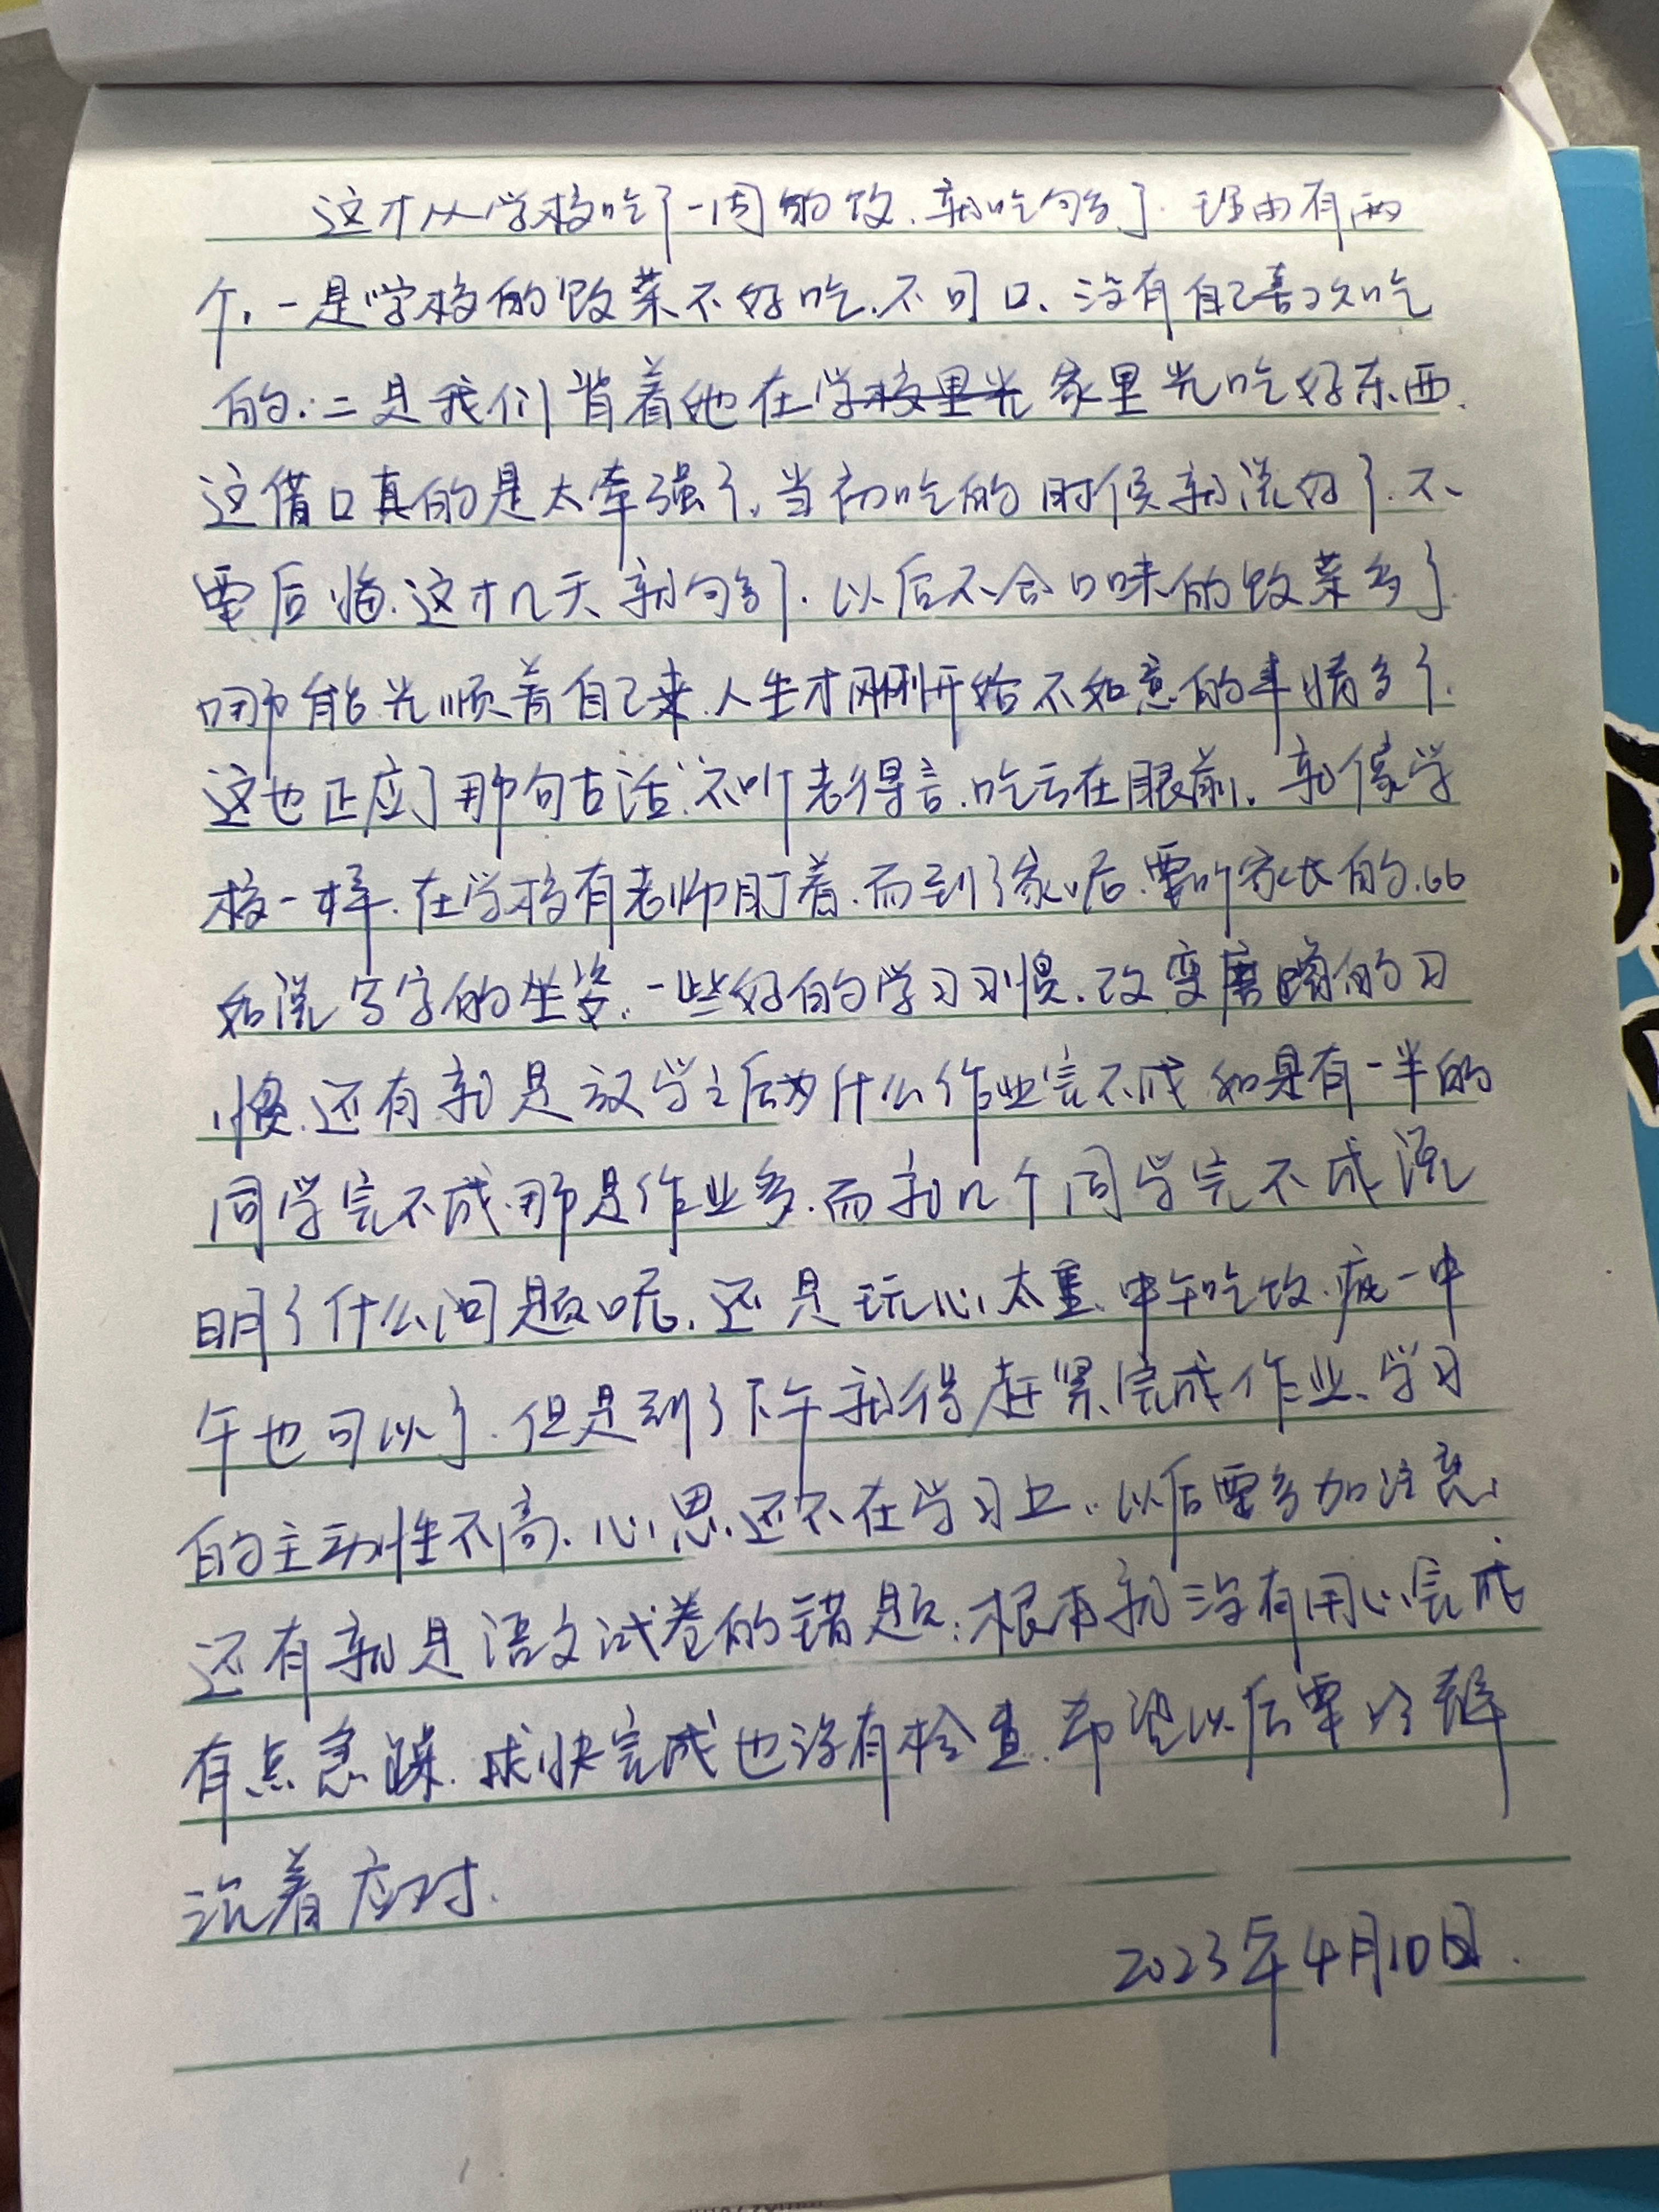 这才从学校吃了一周的饭、就吃够了.理由有两
个,一是学校的饭菜不好吃.不可口、没有自己喜欢吃
的.二是我们背着她在家里光吃好东西.
这借口真的是太牵强了,当初吃的时候就说好了.不
要后悔.这才几天就够了.以后不合口味的饭菜多了
哪能光顺着自己来.人生才刚刚开始不如意的事情多了.
这也正应了那句古话:不听老得言.吃亏在眼前.就像学
校一样.在学校有老师盯着.而到了家呢.要听家长的.比
如说写字的坐姿.一些好的学习习惯.改变磨蹭的习
惯.还有就是放学之后为什么作业完不成 如果有一半的
同学完不成.那是作业多.而就几个同学完不成说
明了什么问题呢.还是玩心太重.中午吃饭.疯一中
午也可以了.但是到了下午就得赶紧完成作业、学习
的主动性不高、心思还不在学习上.以后要多加注意.
还有就是语文试卷的错题:根本就没有用心完成
有点急躁.求快完成也没有检查.希望以后要冷静
沉着应对.
2023年4月10日.